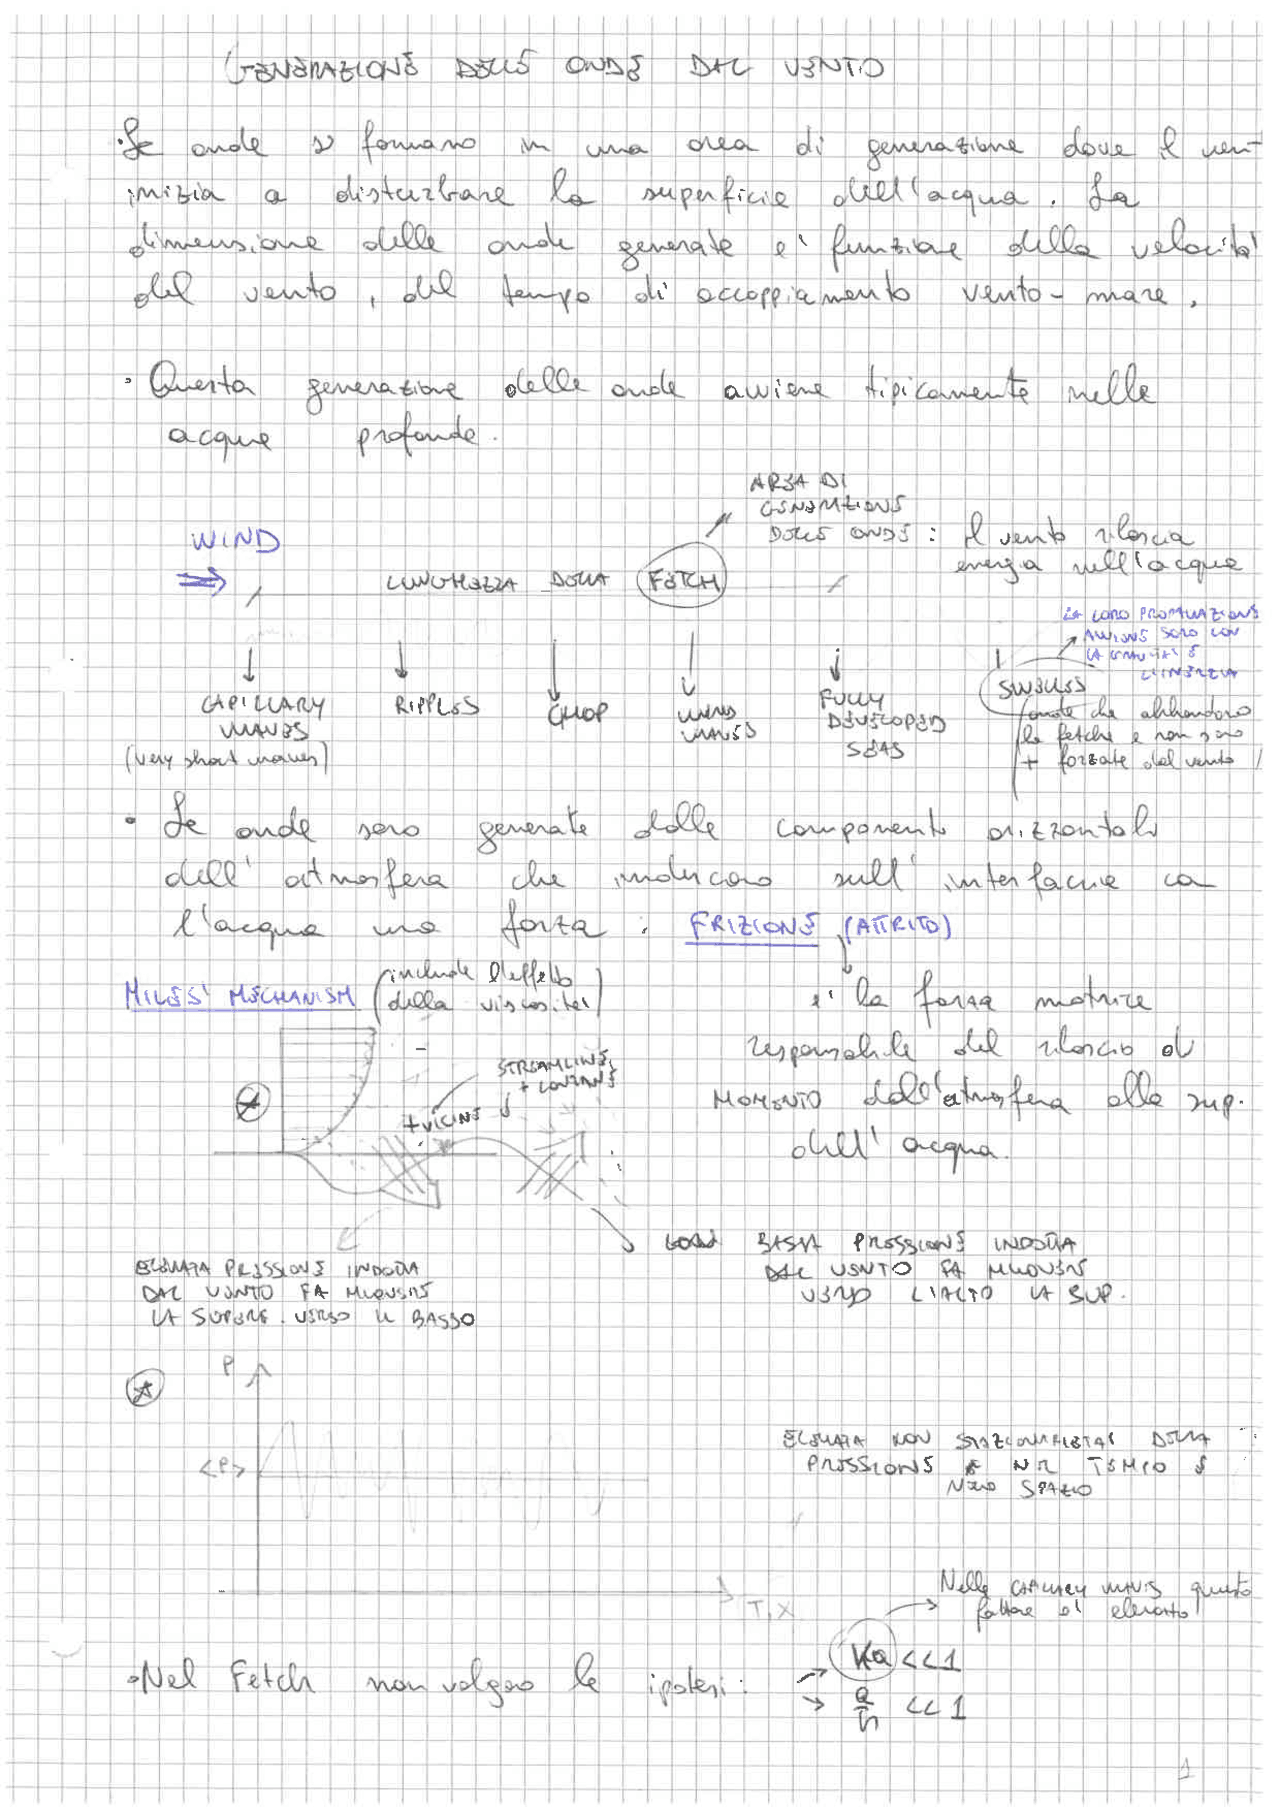 GENERAZIONE DELLE ONDE DAL VENTO
• Le onde si formano in una area di generazione dove il vent
inizia a disturbare la superficie dell'acqua. La
dimensione delle onde generate e' funzione della velocità
del vento, del tempo di accoppiamento vento-mare.
• Questa generazione delle onde avviene tipicamente nelle
acque profonde.
AREA DI
GENERAZIONE
DELLE ONDE : Il vento rilascia
energia nell'acqua
WIND
LUNGHEZZA DELLA FETCH
LA LORO PROPAGAZIONE
AVVIENE SOLO CON
LA GRAVITA' E
L'INERZIA
CAPILLARY
WAVES
(very short waves)
RIPPLES
CHOP
WIND
WAVES
FULLY
DEVELOPED
SEAS
SWELLS
(onde che abbandono
la fetche e non sono
+ forzate dal vento)
• Le onde sono generate dalle componenti orizzontali
dell'atmosfera che inducono sull'interfaccia con
l'acqua una forza : FRIZIONE (ATTRITO)
MILES' MECHANISM (include l'effetto
della viscosita')
e' la forza motrice
responsabile del rilascio di
MOMENTO dall'atmosfera alla sup.
dell'acqua.
STREAMLINE
+ LONTANE
+ VICINE
ELEVATA PRESSIONE INDOTTA
DAL VENTO FA MUOVERE
LA SUPERF. VERSO IL BASSO
BASSA PRESSIONE INDOTTA
DAL VENTO FA MUOVERE
VERSO L'ALTO LA SUP.
P
<P>
T, X
ELEVATA NON STAZIONARIETA' DELLA
PRESSIONE NEL TEMPO E
NELLO SPAZIO
Nelle CAPILLARY WAVES questo
fattore e' elevato
• Nel Fetch non valgono le ipotesi : Ka <<1
a/h <<1
1